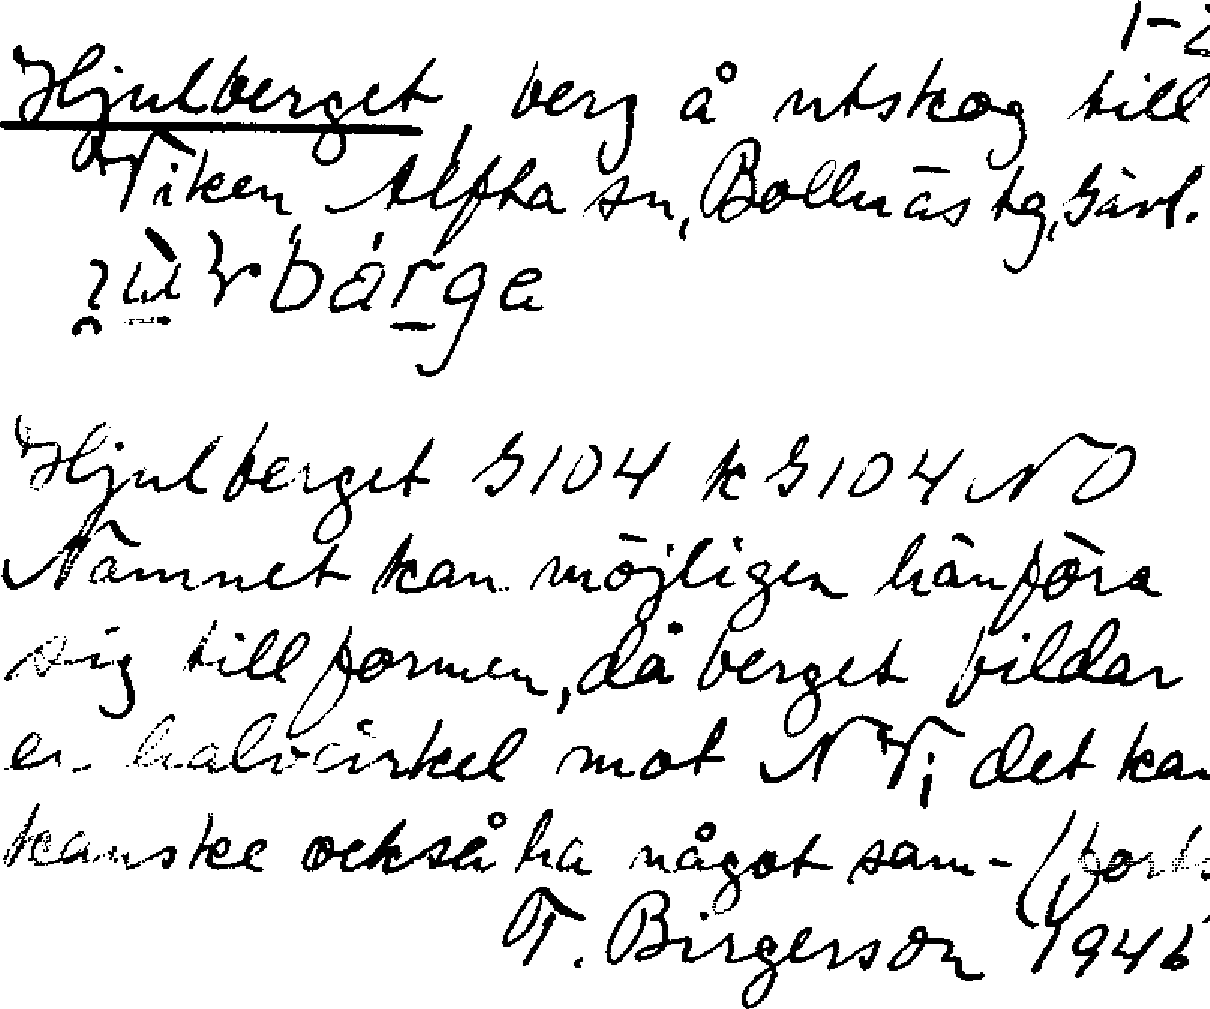 1-2
Hjulberget, berg å utskog till
Viken, Alfta sn, Bollnäs tg, Gävl.
bárga
Hjulberget G104 k G104 NO
Namnet kan möjligen hänföra
sig till formen, då berget bildar
en halvcirkel mot NV; det kan
kanske också ha något sam- (forts.
T. Birgerson 1946